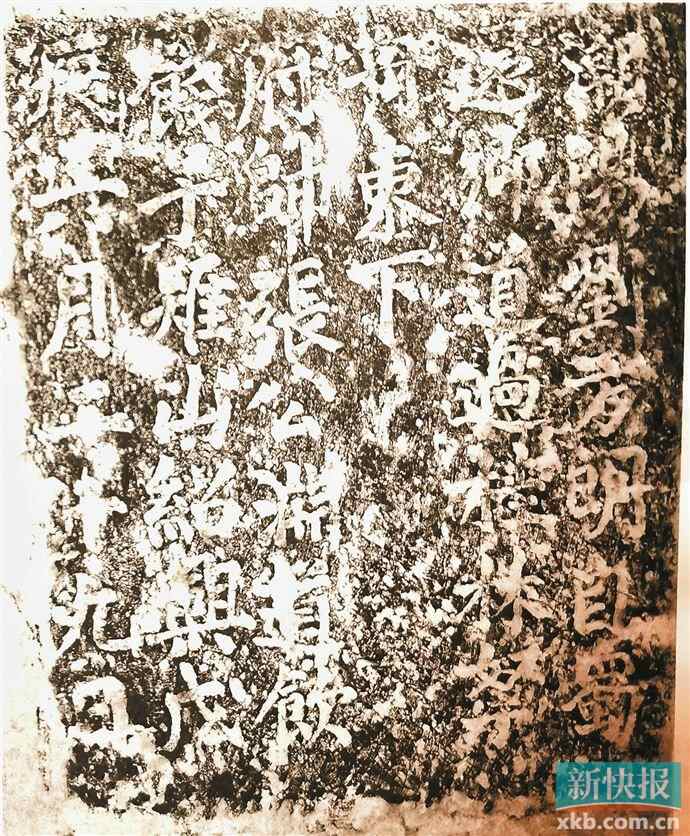 潮陽劉方明自蜀
還鄉道過桂林
東下
府帥張公淵道飲
餞于雉山紹興戊
辰三月二十九日
新快报
xkb.com.cn